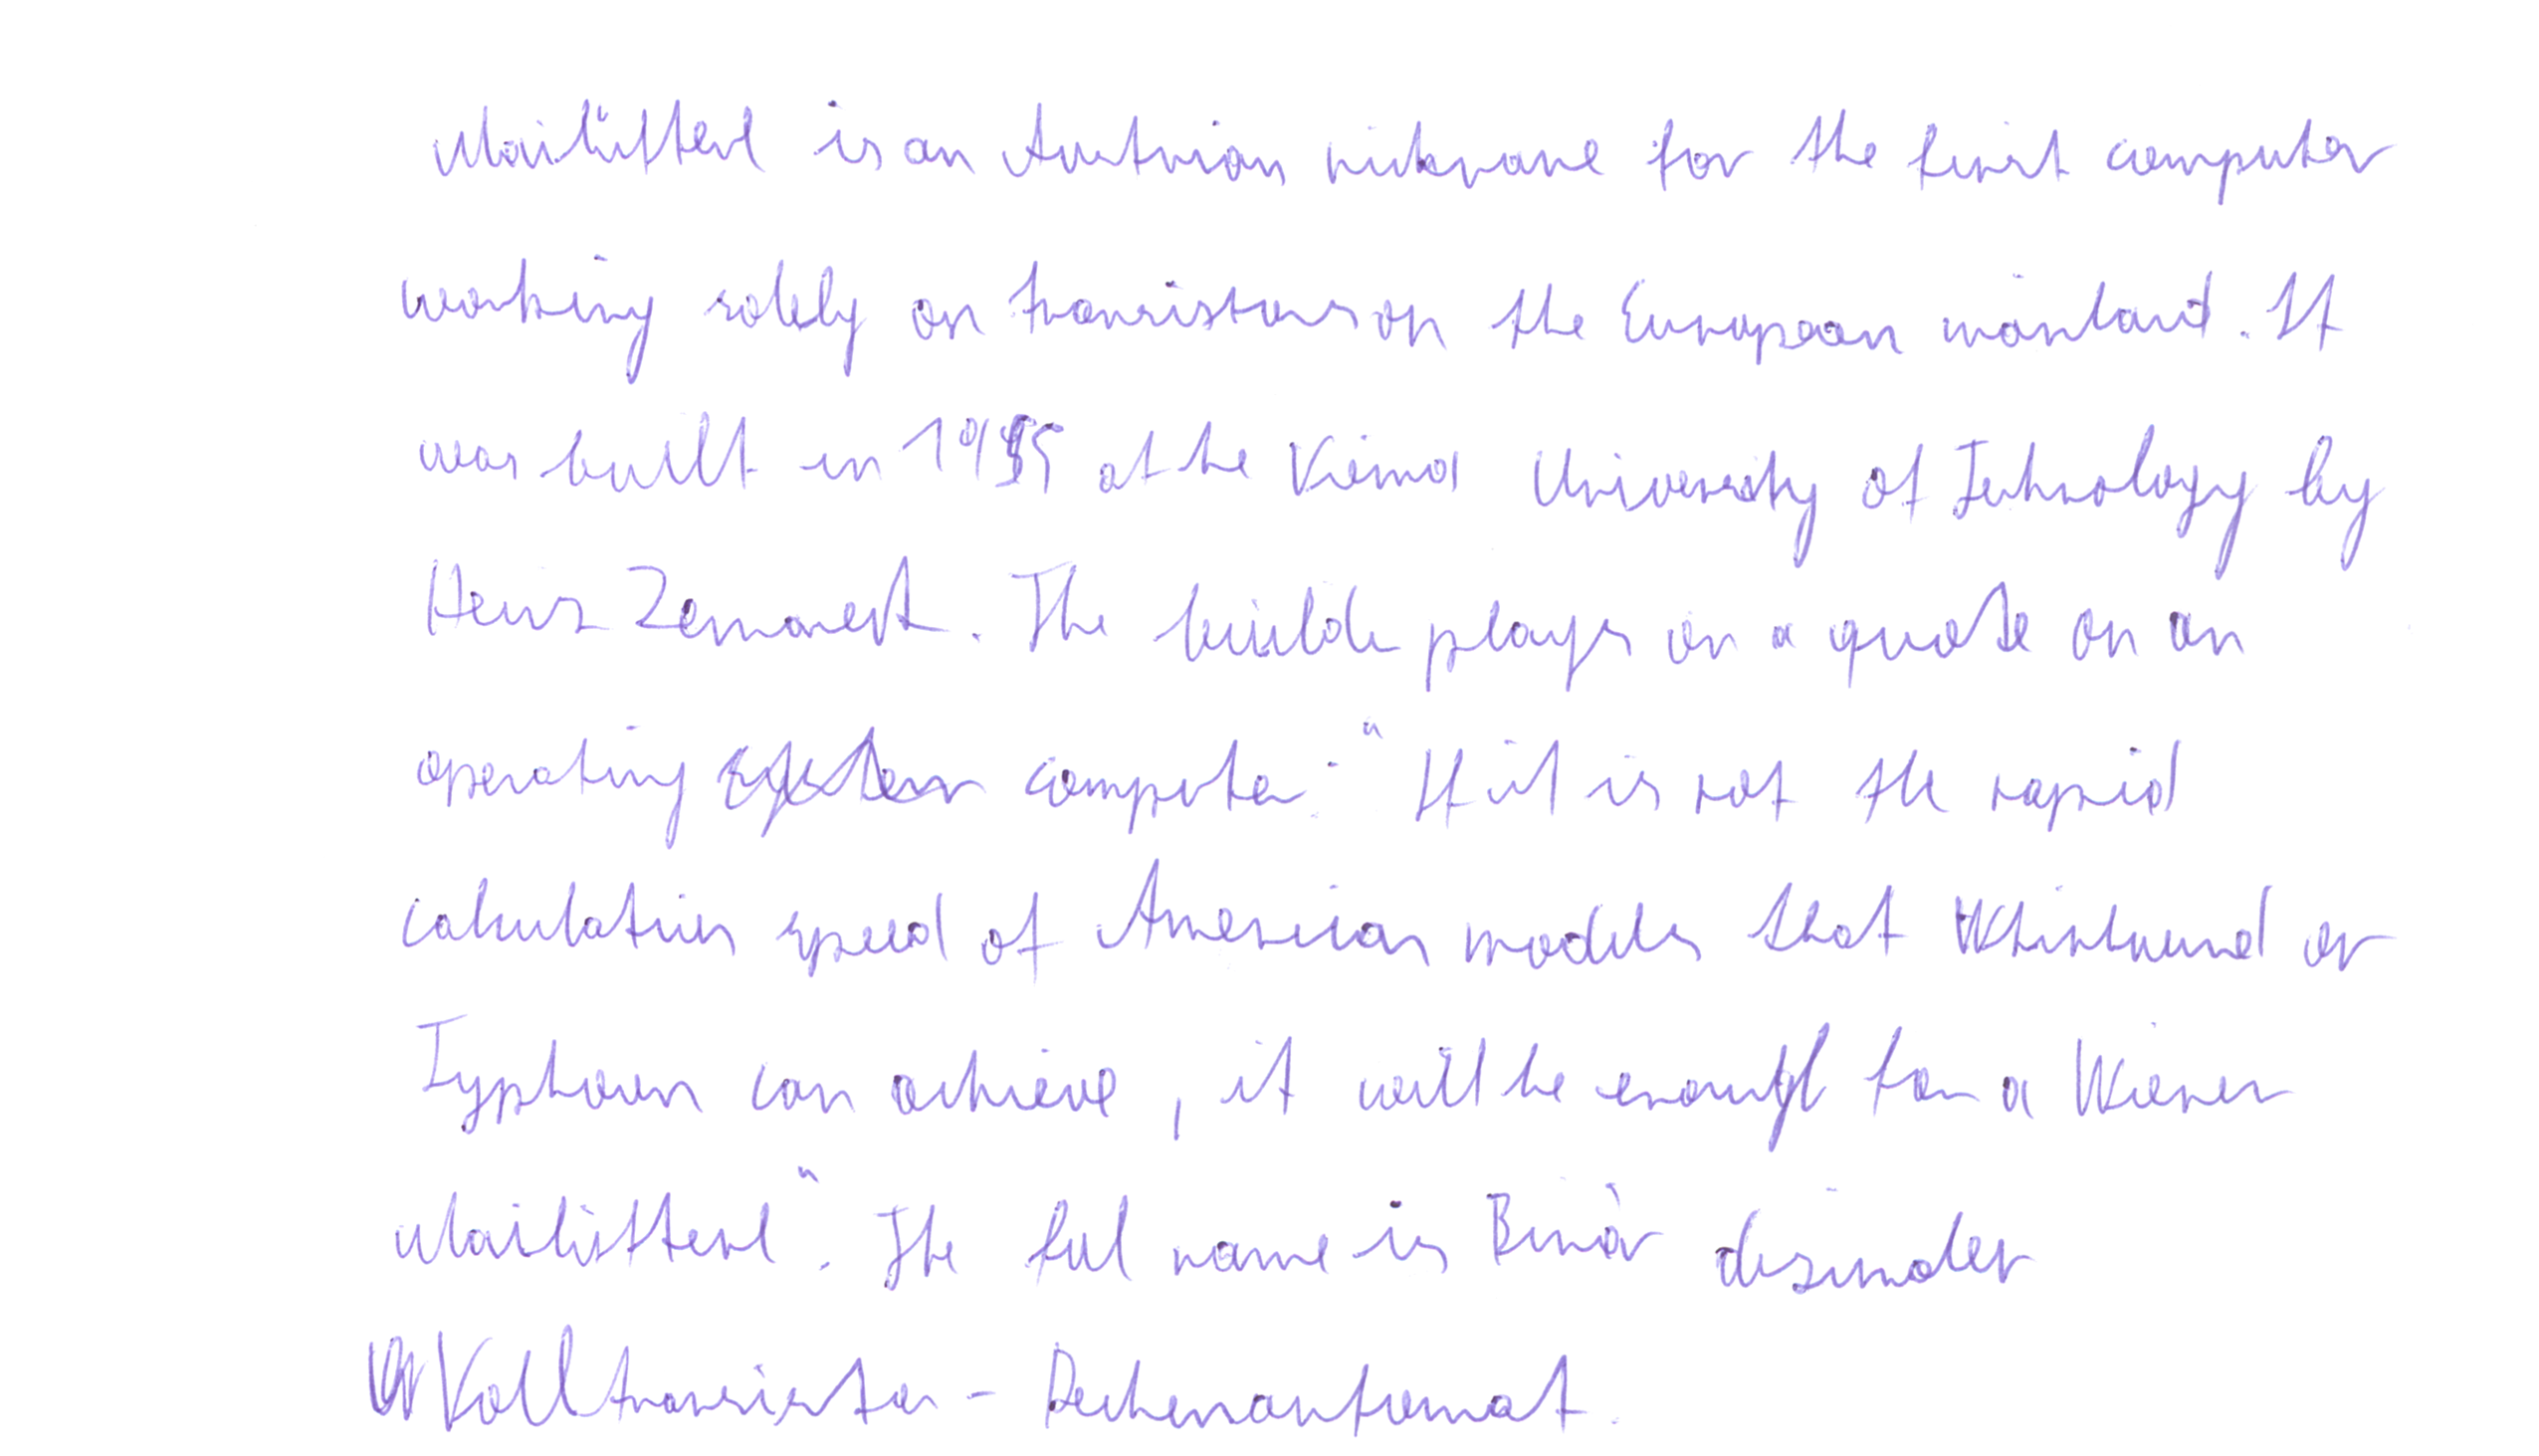 Mailüfterl is an Austrian nickname for the first computer
working solely on transistors on the European mainland. It
was built in 1955 at the Vienna University of Technology by
Heinz Zemanek. The builder plays on a quote on an
operating computer: "If it is not the rapid
calculation speed of American models that Whirlwind or
Typhoon can achieve, it will be enough for a Wiener
Mailüfterl". The full name is Binär dezimaler
Volltransistor - Rechenautomat.